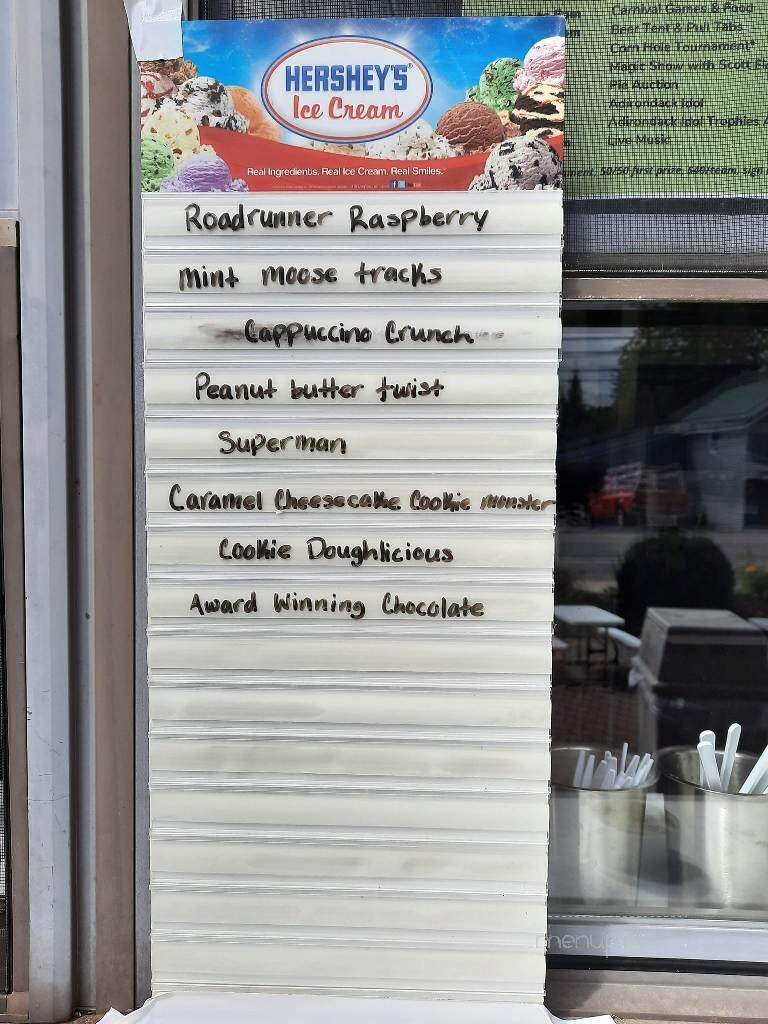 HERSHEY'S
Ice Cream
Real Ingredients. Real Ice Cream. Real Smiles.
Roadrunner Raspberry
mint moose tracks
Cappuccino Crunch
Peanut butter twist
Superman
Caramel Cheesecake Cookie monster
Cookie Doughlicious
Award Winning Chocolate
Carnival Games & Food
Beer Tent & Pull Tabs
Corn Hole Tournament*
Magic Show with Scott
Pie Auction
Adirondack Idol
Adirondack Idol Trophies
Live Music
50/50 first prize, $40/team, sign